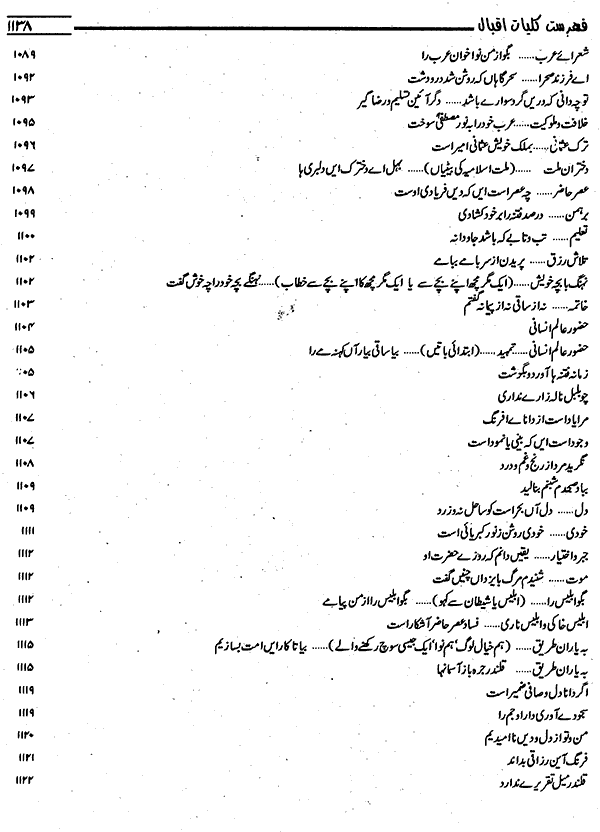 فہرست کلیات اقبال ۱۱۳۸
شعرائے عرب...... بگو از من نوا خوان عرب را ۱۰۸۹
اے فرزند صحرا...... سحر گاہاں کہ روشن شد در و دشت ۱۰۹۲
تو چہ دانی کہ دریں گرد سوارے باشد...... دگر آئین تسلیم و رضا گیر ۱۰۹۳
خلافت و ملوکیت...... عرب خود را بہ نور مصطفیٰؐ سوخت ۱۰۹۵
ترک عثمانی...... بملک خویش عثمانی امیر است ۱۰۹۶
دختران ملت ...... (ملت اسلامیہ کی بیٹیاں)...... بہل اے دخترک ایں دلبری ہا ۱۰۹۷
عصر حاضر...... چہ عصر است ایں کہ دیں فریادی اوست ۱۰۹۸
برہمن...... در صد فتنہ را بر خود کشادی ۱۰۹۹
تعلیم...... تب و تابے کہ باشد جاودانہ ۱۱۰۰
تلاش رزق...... پریدن از سر بامے ببامے ۱۱۰۲
نہنگ با بچہ خویش......(ایک مگرمچھ اپنے بچے سے یا ایک مگرمچھ کا اپنے بچے سے خطاب)...... نہنگے بچہ خود را چہ خوش گفت ۱۱۰۲
خاتمہ...... نہ از ساقی نہ از پیمانہ گفتم ۱۱۰۳
حضور عالم انسانی ۱۱۰۴
حضور عالم انسانی...... تمہید......(ابتدائی باتیں)...... بیا ساقی بیار آں کہنہ مے را ۱۱۰۵
زمانہ فتنہ ہا آورد و بگوشت
چو بلبل نالہ زارے نداری ۱۱۰۶
مرا یاد است از دانائے افرنگ ۱۱۰۷
وجود است ایں کہ بینی یا نمود است ۱۱۰۷
نگرید مرد از رنج و غم و درد ۱۱۰۸
بباد صبحدم شبنم بنالید ۱۱۰۹
دل...... دل آں بحر است کو ساحل نہ ورزد ۱۱۰۹
خودی...... خودی روشن ز نور کبریائی است ۱۱۱۱
جبر و اختیار...... یقیں دانم کہ روزے حضرت او ۱۱۱۲
موت...... شنیدم مرگ با یزداں چنیں گفت ۱۱۱۲
بگو ابلیس را...... (ابلیس یا شیطان سے کہو)...... بگو ابلیس را از من پیامے ۱۱۱۲
ابلیس خاکی و ابلیس ناری...... فساد عصر حاضر آشکارا است ۱۱۱۳
بہ یاران طریق...... (ہم خیال لوگ 'ہم نوا' ایک جیسی سوچ رکھنے والے)...... بیا تا کار ایں امت بسازیم ۱۱۱۵
بہ یاران طریق...... قلندر جرہ باز آسمانہا ۱۱۱۵
اگر دانا دل و صافی ضمیر است ۱۱۱۹
سجودے آوری دارا و جم را ۱۱۱۹
من و تو از دل و دیں ناامیدیم ۱۱۲۰
فرنگ آئین رزاقی بداند ۱۱۲۱
قلندر میل تقریرے ندارد ۱۱۲۲